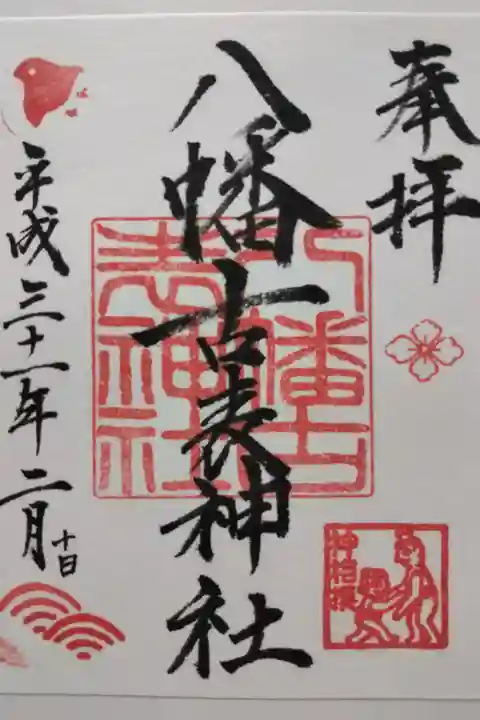 奉拝
八幡古表神社
八幡古
表神社
神相撲
平成三十一年二月十日